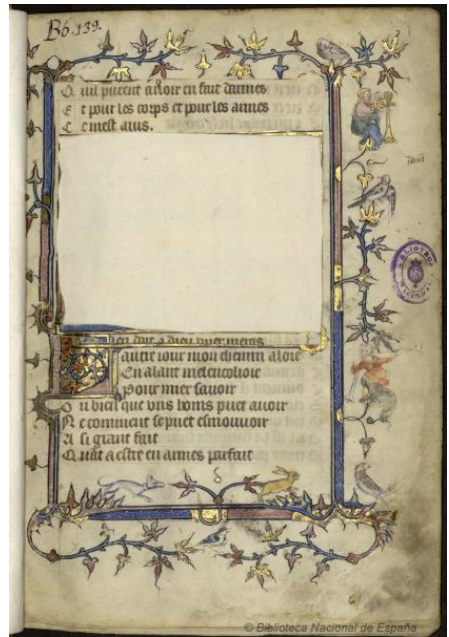 Bb.139.
Q uil pueent auoir en fait darmes
E t pour les corps et pour les armes
C e mest auis.
dieu
autre iour mon chemin aloie
En alant melencolioie
Pour mier sauoir
O u bien que uns homs puet auoir
N e comment se puet esmouuoir
A si grant fait
Quant a estre en armes parfait
BIBLIOTECA NACIONAL
© Biblioteca Nacional de España